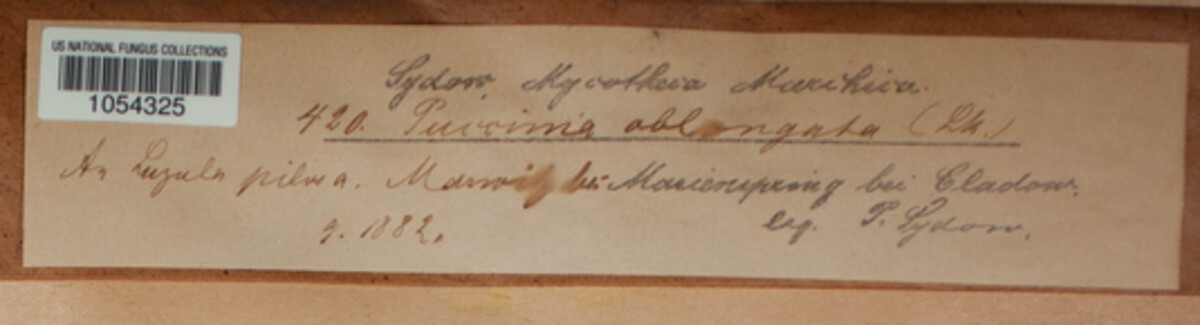 US NATIONAL FUNGUS COLLECTIONS
1054325
Sydow, Mycotheca Marchica.
420. Puccinia oblongata (Lk.)
An Luzula pilosa. Marwitz bei Marienspring bei Cladow.
9. 1882. leg. P. Sydow.